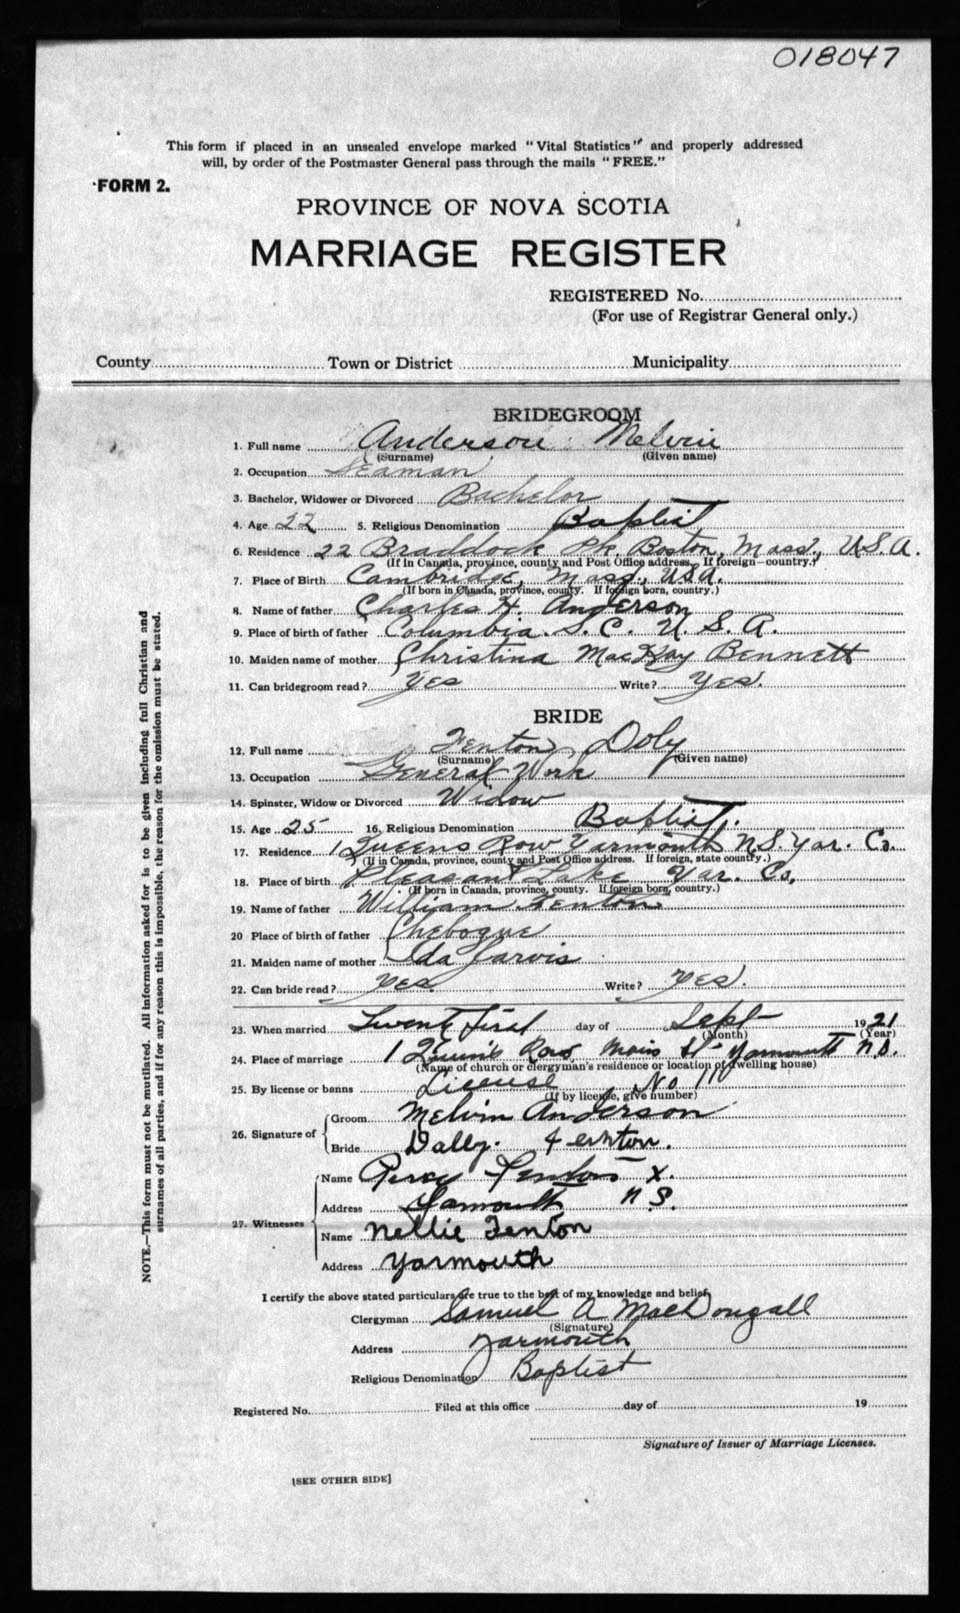 018047
This form if placed in an unsealed envelope marked "Vital Statistics" and properly addressed
will, by order of the Postmaster General pass through the mails "FREE."
FORM 2.
PROVINCE OF NOVA SCOTIA
MARRIAGE REGISTER
REGISTERED No.
(For use of Registrar General only.)
County Town or District Municipality
BRIDEGROOM
1. Full name Anderson Melvin
(Surname) (Given name)
2. Occupation Seaman
3. Bachelor, Widower or Divorced Bachelor
4. Age 22 5. Religious Denomination Baptist
6. Residence 22 Braddock Pk. Boston, Mass., U.S.A.
(If in Canada, province, county and Post Office address. If foreign—country.)
7. Place of Birth Cambridge, Mass., USA.
(If born in Canada, province, county. If foreign born, country.)
8. Name of father Charles H. Anderson
9. Place of birth of father Columbia. S.C. U.S.A.
10. Maiden name of mother Christina MacKay Bennett
11. Can bridegroom read? Yes Write? Yes.
BRIDE
12. Full name Fenton, Doly
(Surname) (Given name)
13. Occupation General Work
14. Spinster, Widow or Divorced Widow
15. Age 25 16. Religious Denomination Baptist.
17. Residence 1 Queens Row Yarmouth N.S. Yar. Co.
(If in Canada, province, county and Post Office address. If foreign, state country.)
18. Place of birth Pleasant Lake Yar. Co.
(If born in Canada, province, county. If foreign born, country.)
19. Name of father William Fenton
20 Place of birth of father Chebogue
21. Maiden name of mother Ida Jarvis
22. Can bride read? Yes. Write? Yes.
23. When married Twenty First day of Sept 1921
(Month) (Year)
24. Place of marriage 1 Queen's Row Main St Yarmouth N.S.
(Name of church or clergyman's residence or location of dwelling house)
25. By license or banns License No 11
(If by license, give number)
26. Signature of Groom Melvin Anderson
Bride Dally. Fernton.
27. Witnesses Name Percy Fenton X.
Address Yarmouth N.S.
Name Nellie Fenton
Address Yarmouth
I certify the above stated particulars are true to the best of my knowledge and belief,
Clergyman Samuel A MacDougall
(Signature)
Address Yarmouth
Religious Denomination Baptist
Registered No. Filed at this office day of 19
Signature of Issuer of Marriage Licenses.
[SEE OTHER SIDE]
NOTE.—This form must not be mutilated. All information asked for is to be given including full Christian and
surnames of all parties, and if for any reason this is impossible, the reason for the omission must be stated.